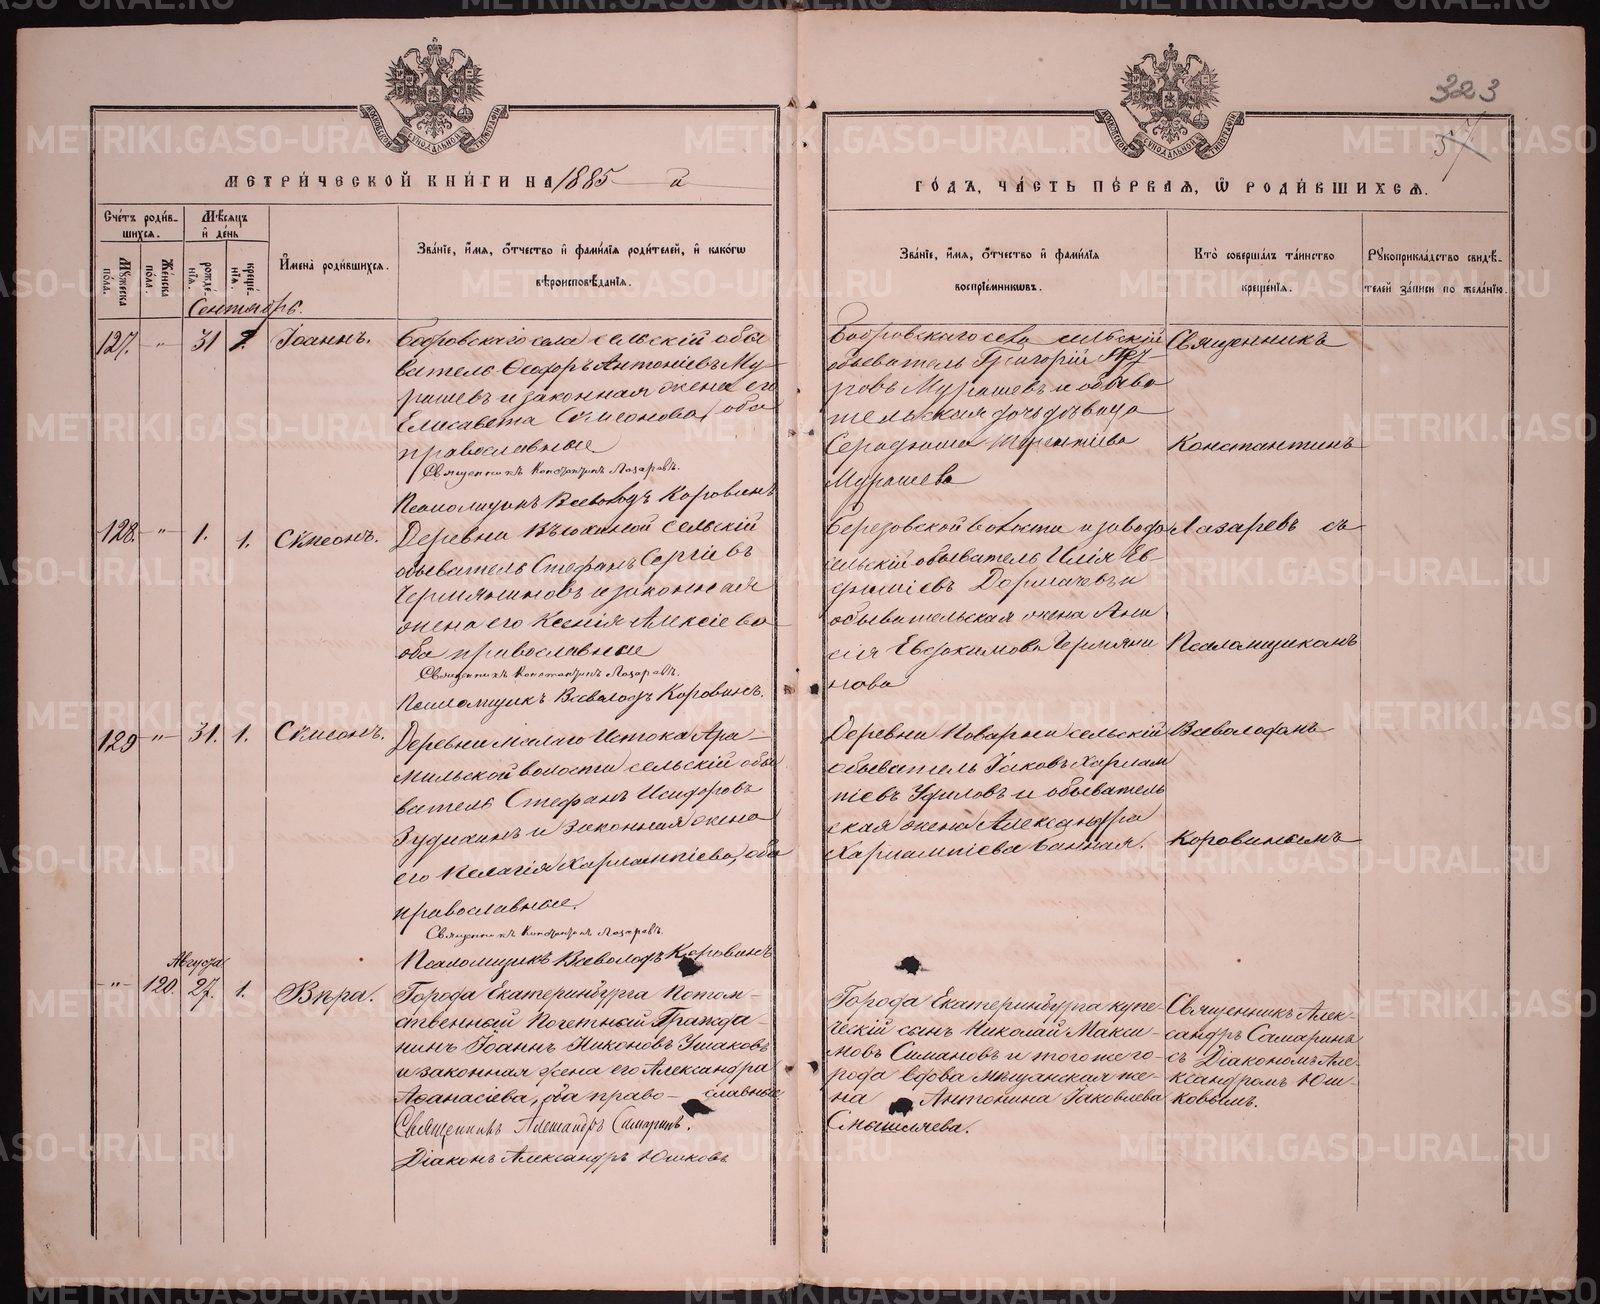 323
57
МЕТРИЧЕСКОЙ КНИГИ НА 1885 й
ГОДЪ, ЧАСТЬ ПЕРВАЯ, Ѡ РОДИВШИХСЯ.
Счетъ родившихся.
Мужеска пола.
Женска пола.
Мѣсяцъ и день
рожденія.
крещенія.
Имена родившихся.
Званіе, имя, отчество и фамилія родителей, и какогѡ
вѣроисповѣданія.
Званіе, имя, отчество и фамилія
воспріемниковъ.
Кто совершалъ таинство
крещенія.
Рукоприкладство свидѣ-
телей записи по желанію.
Сентябрь.
127. " 31 1. Іоаннъ.
Бобровскаго села сельскій обы
ватель Ѳеодоръ Антоніевъ Му-
рашевъ и законная жена его
Елисавета Симеонова, оба
православные
Священникъ Константинъ Лазаревъ.
Псаломщикъ Всеволодъ Коровинъ
Бобровскаго села сельскій
обыватель Григорій Пет-
ровъ Мурашевъ и обыва
тельская дочь дѣвица
Серафима Терентіева
Мурашева
Священникъ
Константинъ
128. " 1. 1. Симеонъ.
Деревни Вьюхиной сельскій
обыватель Стефанъ Сергіевъ
Чермяниновъ и законная
жена его Ксенія Алексіева
оба православные
Священникъ Константинъ Лазаревъ.
Псаломщикъ Всеволодъ Коровинъ.
Березовской волости и завода
сельскій обыватель Илія Ев-
фиміевъ Дормачевъ и
обывательская жена Ани
сія Евдокимова Чермяни
нова
Лазаревъ съ
Псаломщикомъ
129 " 31. 1. Симеонъ.
Деревни Малаго Истока Ара-
мильской волости сельскій обы
ватель Стефанъ Исидоровъ
Зудихинъ и законная жена
его Пелагія Харлампіева, оба
православные.
Священникъ Константинъ Лазаревъ.
Псаломщикъ Всеволодъ Коровинъ
Деревни Поварни сельскій
обыватель Іаковъ Харлам
піевъ Уфиловъ и обыватель
ская жена Александра
Харлампіева Банная.
Всеволодомъ
Коровинымъ
Августа
" 120. 27. 1. Вѣра.
Города Екатеринбурга Потом-
ственный Почетный Гражда-
нинъ Іоаннъ Никоновъ Ушаковъ
и законная жена его Александра
Аѳанасіева, оба право- славные
Священникъ Александръ Самаринъ.
Діаконъ Александръ Юшковъ
Города Екатеринбурга купе-
ческій сынъ Николай Макси-
мовъ Симановъ и того же го-
рода вдова мѣщанская же-
на Антонина Іаковлева
Смышляева.
Священникъ Алек-
сандръ Самаринъ
съ Діакономъ Але-
ксандромъ Юш-
ковымъ.
METRIKI.GASO-URAL.RU